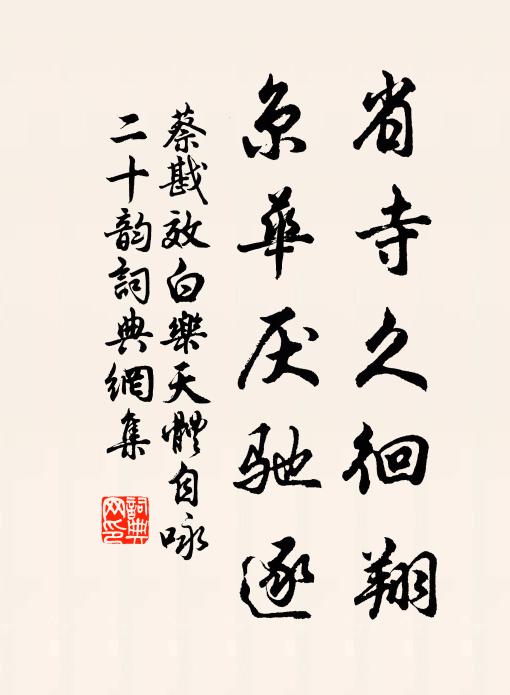 省寺久徊翔
京華厌馳逐
蔡戡效白樂天體自咏
二十韵詞典網集
詞典
网印